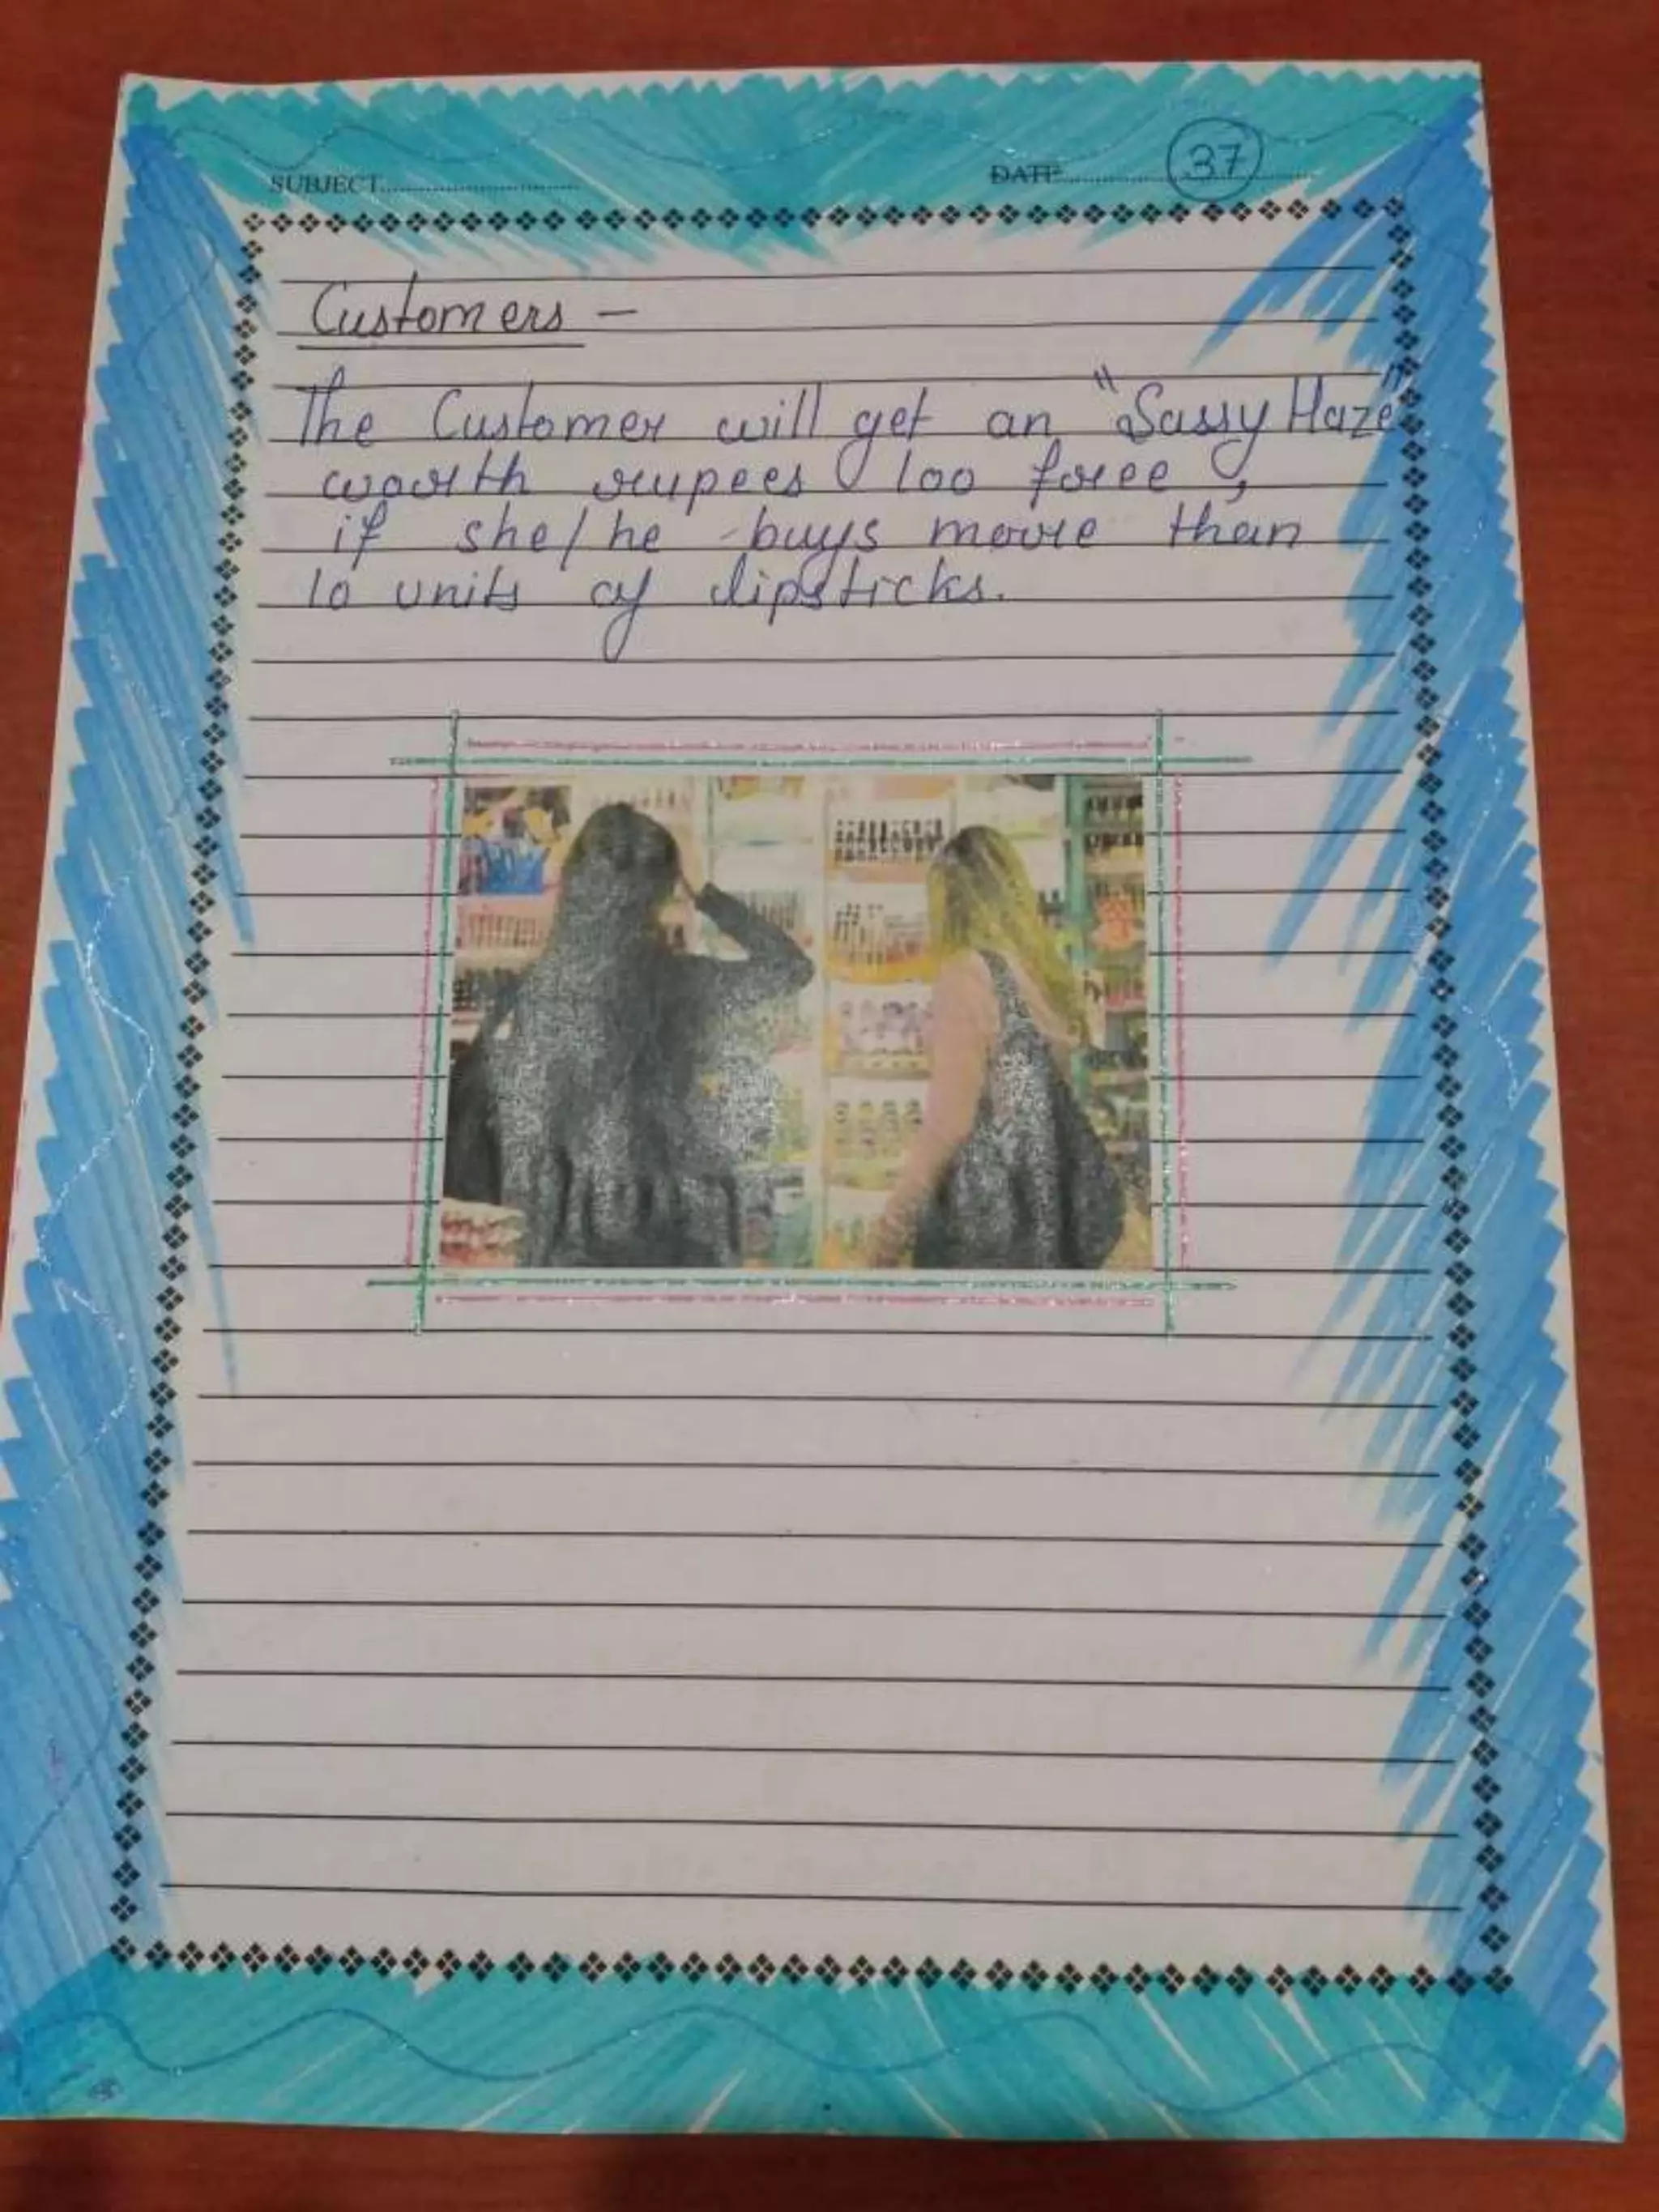 SUBJECT
DATE
37
Customers -
The Customer will get an "Sassy Haze"
worth rupees 100 free,
if she/he buys more than
10 units of lipsticks.